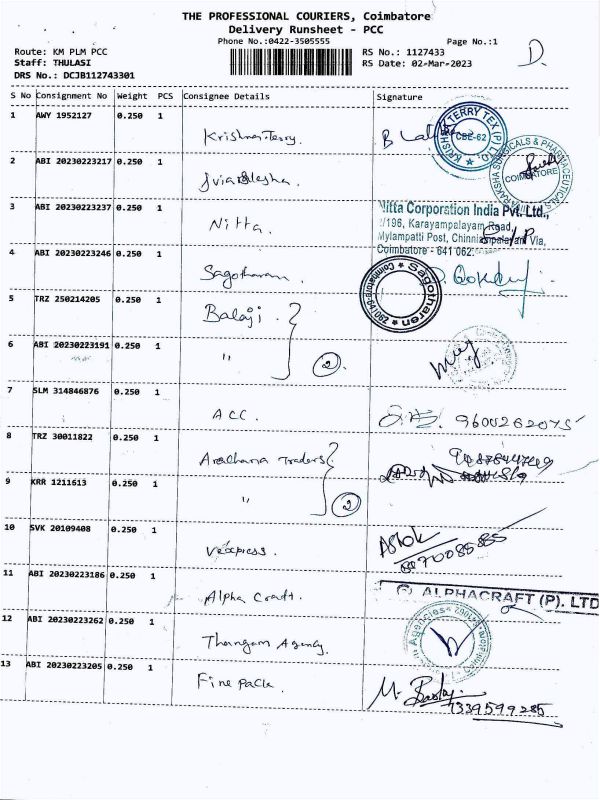 THE PROFESSIONAL COURIERS, Coimbatore
Delivery Runsheet - PCC
Phone No.:0422-3505555
Page No.:1
Route: KM PLM PCC
RS No.: 1127433
D.
Staff: THULASI
RS Date: 02-Mar-2023
DRS No.: DCJB112743301
S No Consignment No Weight PCS Consignee Details Signature
1 AWY 1952127 0.250 1 Krishna Terry.
CBE-62
2 ABI 20230223217 0.250 1
COIMBATORE
3 ABI 20230223237 0.250 1 Nitta.
Nitta Corporation India Pvt. Ltd.,
/196, Karayampalayam Road,
Mylampatti Post, Chinniampalayam Via,
Coimbatore - 641 062.
4 ABI 20230223246 0.250 1 Sagotharan.
Sagotharan
Coimbatore-641 062
5 TRZ 250214205 0.250 1 Balaji.
6 ABI 20230223191 0.250 1 "
2
7 SLM 314846876 0.250 1 ACC. 9600262075
8 TRZ 30011822 0.250 1 Aradhana Traders
9 KRR 1211613 0.250 1 "
2
10 SVK 20109408 0.250 1 Vexpress. Ashok
11 ABI 20230223186 0.250 1 Alpha Craft.
ALPHACRAFT (P). LTD
12 ABI 20230223262 0.250 1 Thangam Agency.
Agencies
13 ABI 20230223205 0.250 1 Fine Pack.
7339599285